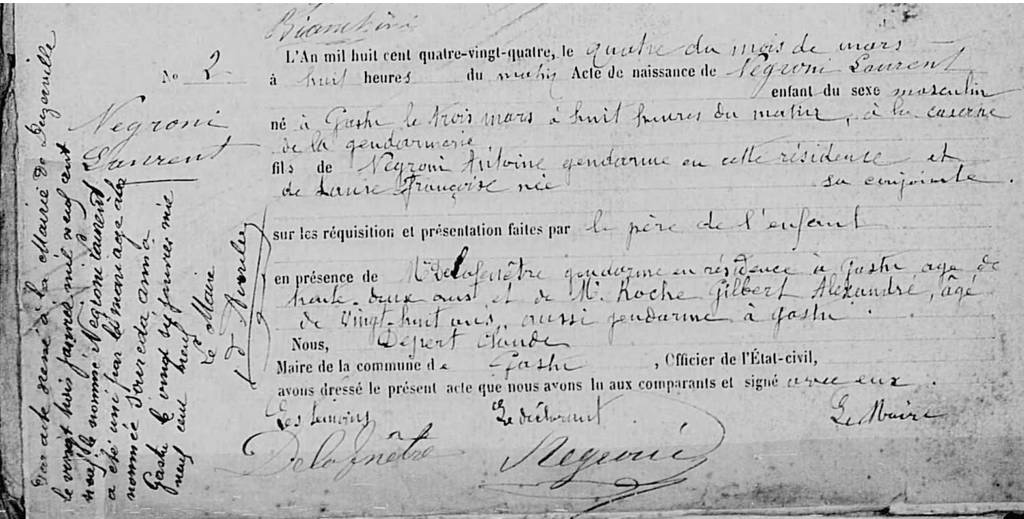 Bianchini
L'An mil huit cent quatre-vingt-quatre, le quatre du mois de mars
No 2
à huit heures du matin Acte de naissance de Negroni Laurent
enfant du sexe masculin
né à Gastu le trois mars à huit heures du matin, à la caserne
de la gendarmerie
fils de Negroni Antoine gendarme en cette résidense et
de Laure Françoise née sa conjointe.
sur les réquisition et présentation faites par le père de l'enfant
en présence de Mr Delafenêtre gendarme en résidence à Gastu age de
trente deux ans et de Mr. Roche Gilbert Alexandre, âgé
de vingt-huit ans, aussi gendarme à Gastu.
Nous, Depert Claude
Maire de la commune de Gastu, Officier de l'État-civil,
avons dressé le présent acte que nous avons lu aux comparants et signé avec eux.
Les temoins Le déclarant Le Maire
Delafenêtre Negroni
Negroni
Laurent
Par acte dressé à la Mairie de
le vingt trois janvier mil neuf cent
neuf le nomme Negroni Laurent
a été uni par le mariage à la
nommée
Gastu le vingt six janvier mil
neuf cent neuf
Le Maire